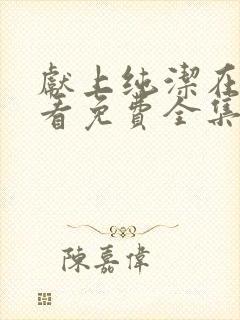 獻上纯潔在
看免費全集
陳嘉偉